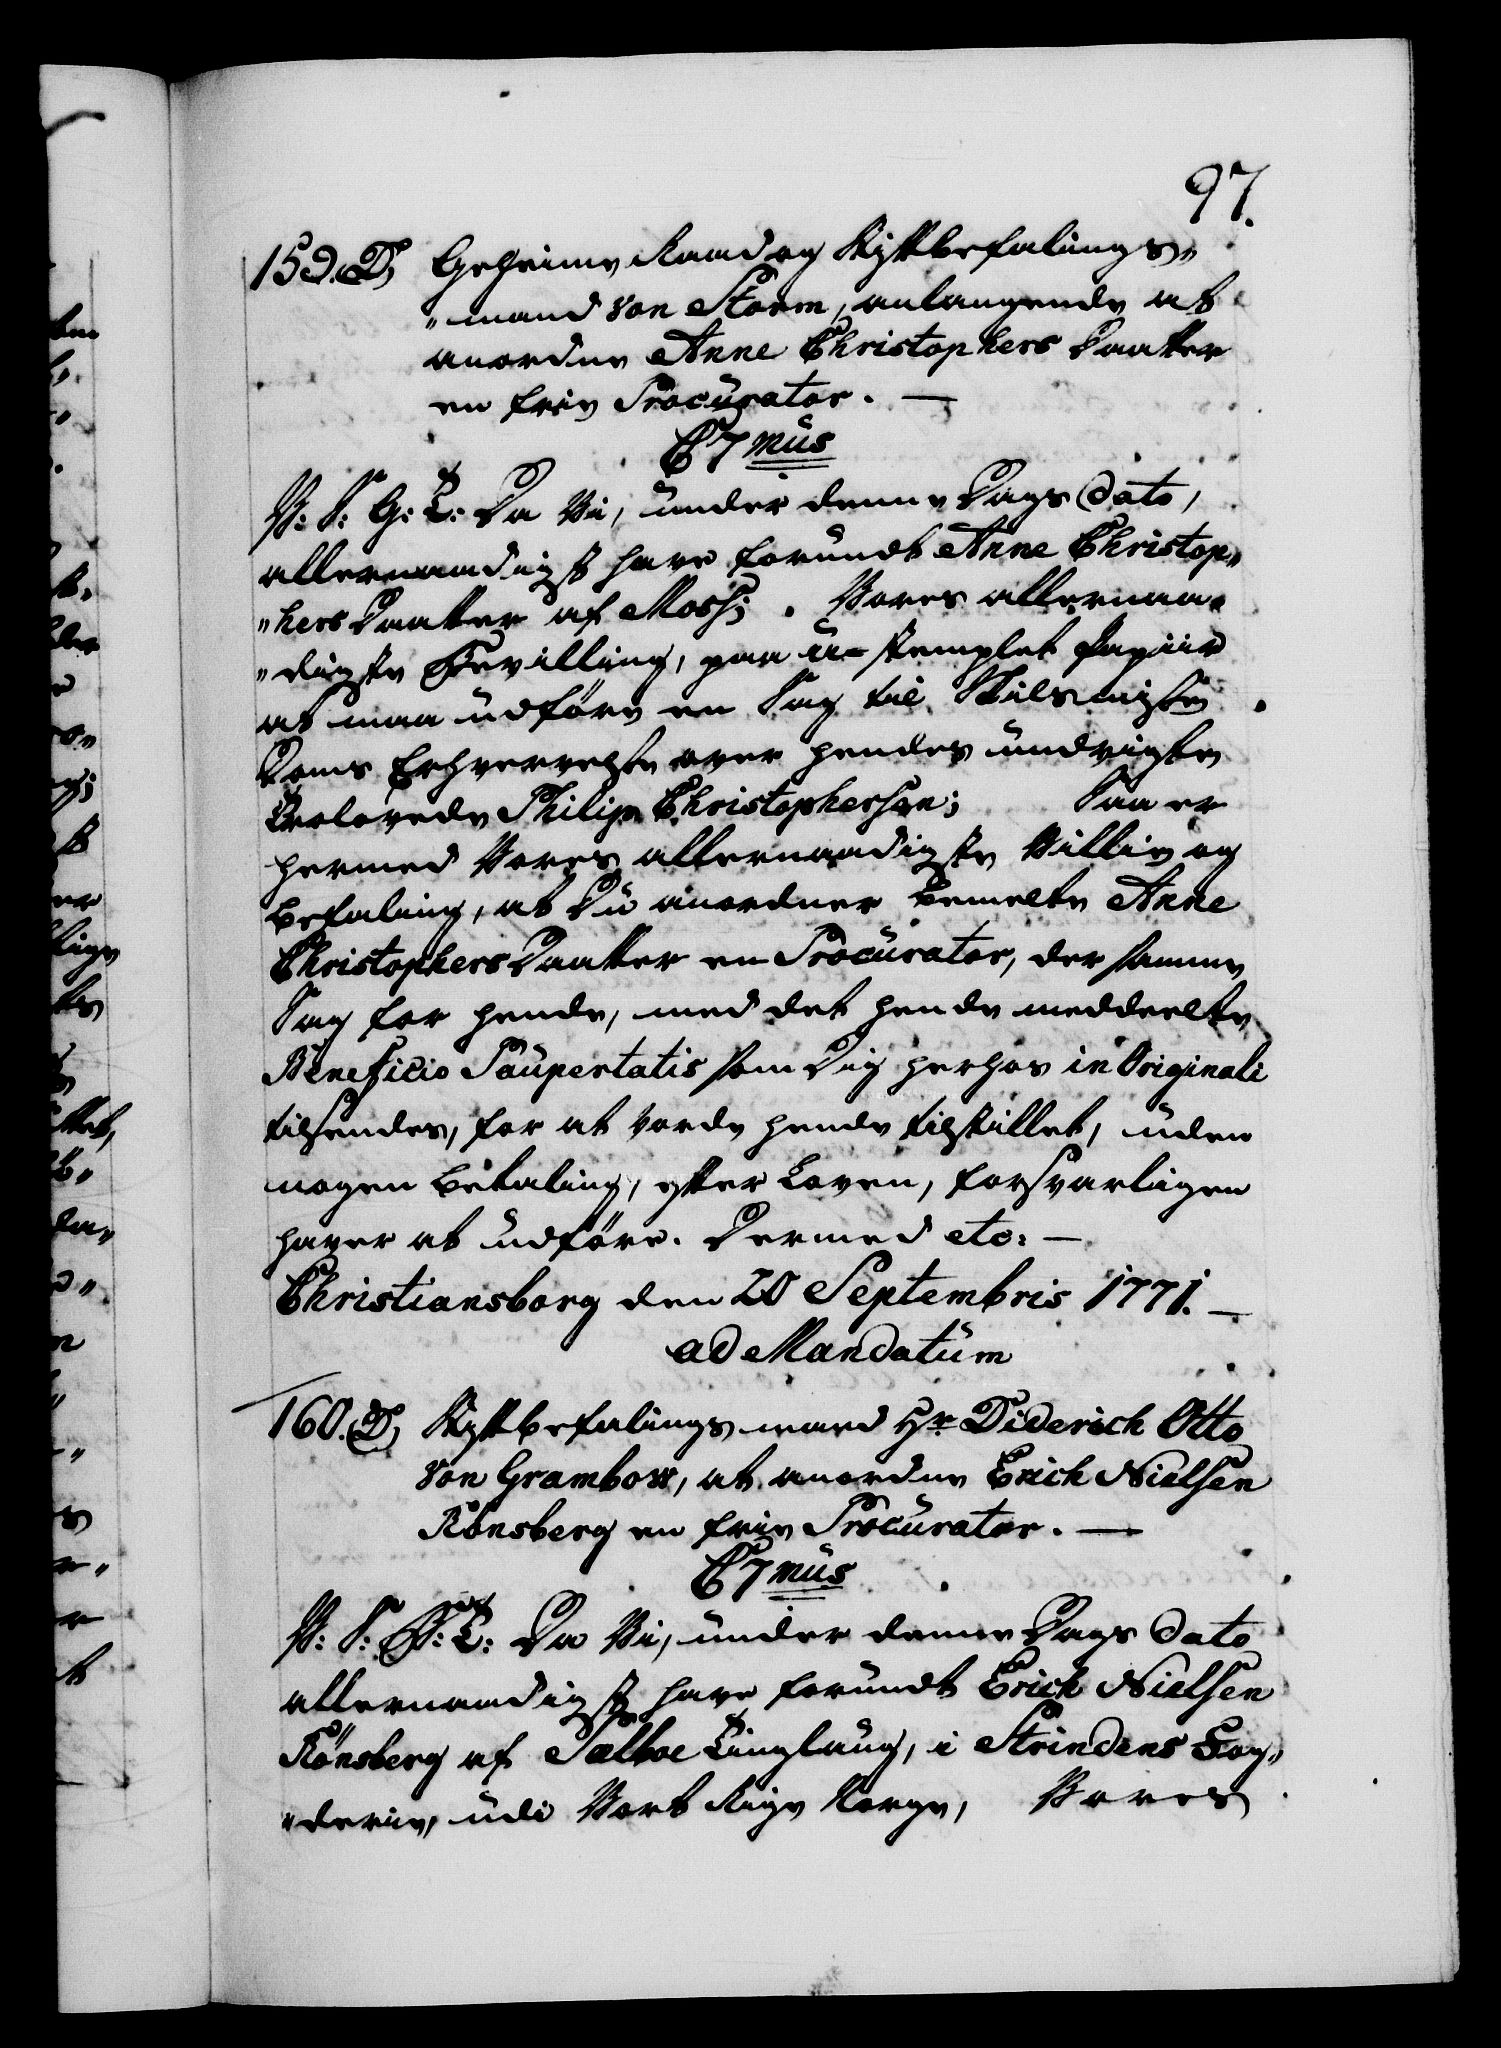 97.
159. D, Geheime Raad og Stiftbefalings„
„mand von Storm, anlangende at
anordne Anne Christophers Daatter
en frie Procurator. —
C7mus
V: S: G: T: Da Vi, under denne Dags Dato,
allernaadigst have forundt Anne Christop„
„hers Daatter af Moss; . Vores allernaa„
„digste Bevilling, paa u-stemplet Papiir
at maa udføre en Sag til Skilsmisse
Doms Erhvervelse over hendes undvigte
Trolovede Philip Christophersen; Saa er
hermed Vores allernaadigste Villie og
Befaling, at Du anordner bemelte Anne
Christophers Daatter en Procurator, der samme
Sag for hende, med det hende meddeelte
Beneficio Paupertatis som Dig herhos in Originali
tilsendes, for at vorde hende tilstillet, uden
nogen Betaling, efter Loven, forsvarligen
haver at udføre. Dermed etc: —
Christiansborg den 20 Septembris 1771. —
ad Mandatum
160. D, Stiftbefalingsmand Hr Diderich Otto
von Grambow, at anordne Erich Nielsen
Rønsberg en frie Procurator. —
C7mus
V: S: G: T: Da Vi, under denne Dags Dato
allernaadigst have forundt Erich Nielsen
Rønsberg af Sælboe Tinglaug, i Strindens Fog„
„derie, udi Vort Rige Norge, Vores